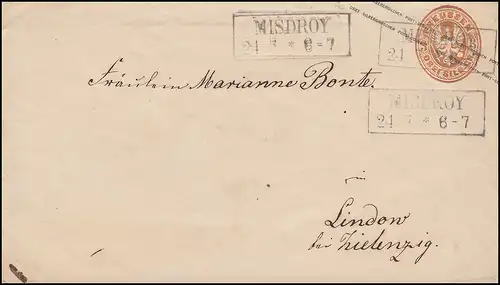 MISDROY
21 7 * 6-7
MISDROY
21
PREUSSEN
SILBERGR.
MISDROY
21 7 * 6-7
Fräulein Marianne Bonte.
in
Lindow
bei Zielenzig.